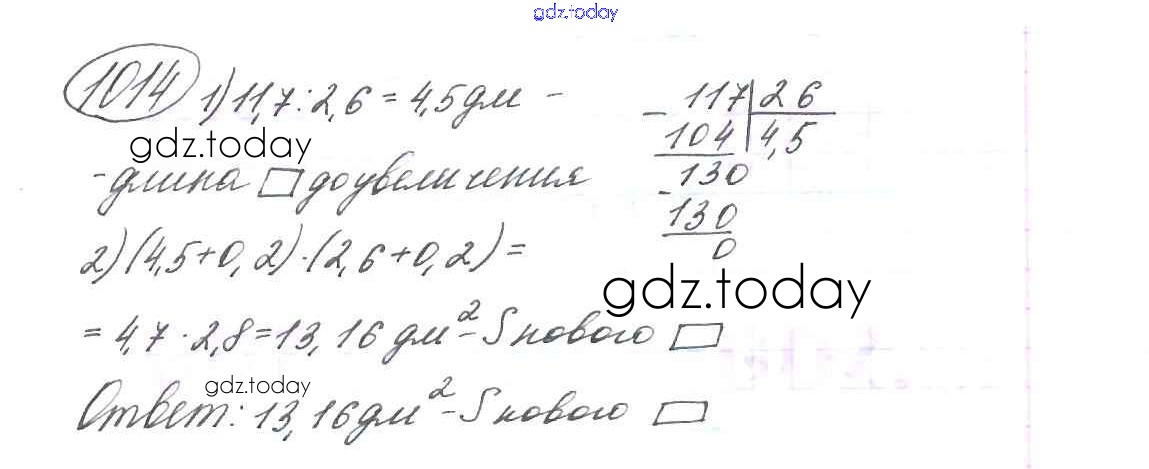 gdz.today
1014 1) 11,7 : 2,6 = 4,5 дм -
gdz.today
- длина ▭ до увеличения
2) (4,5+0,2)·(2,6+0,2) =
= 4,7 · 2,8 = 13,16 дм² - S нового ▭
gdz.today
Ответ: 13,16 дм² - S нового ▭
- 117 | 26
104 | 4,5
- 130
130
0
gdz.today